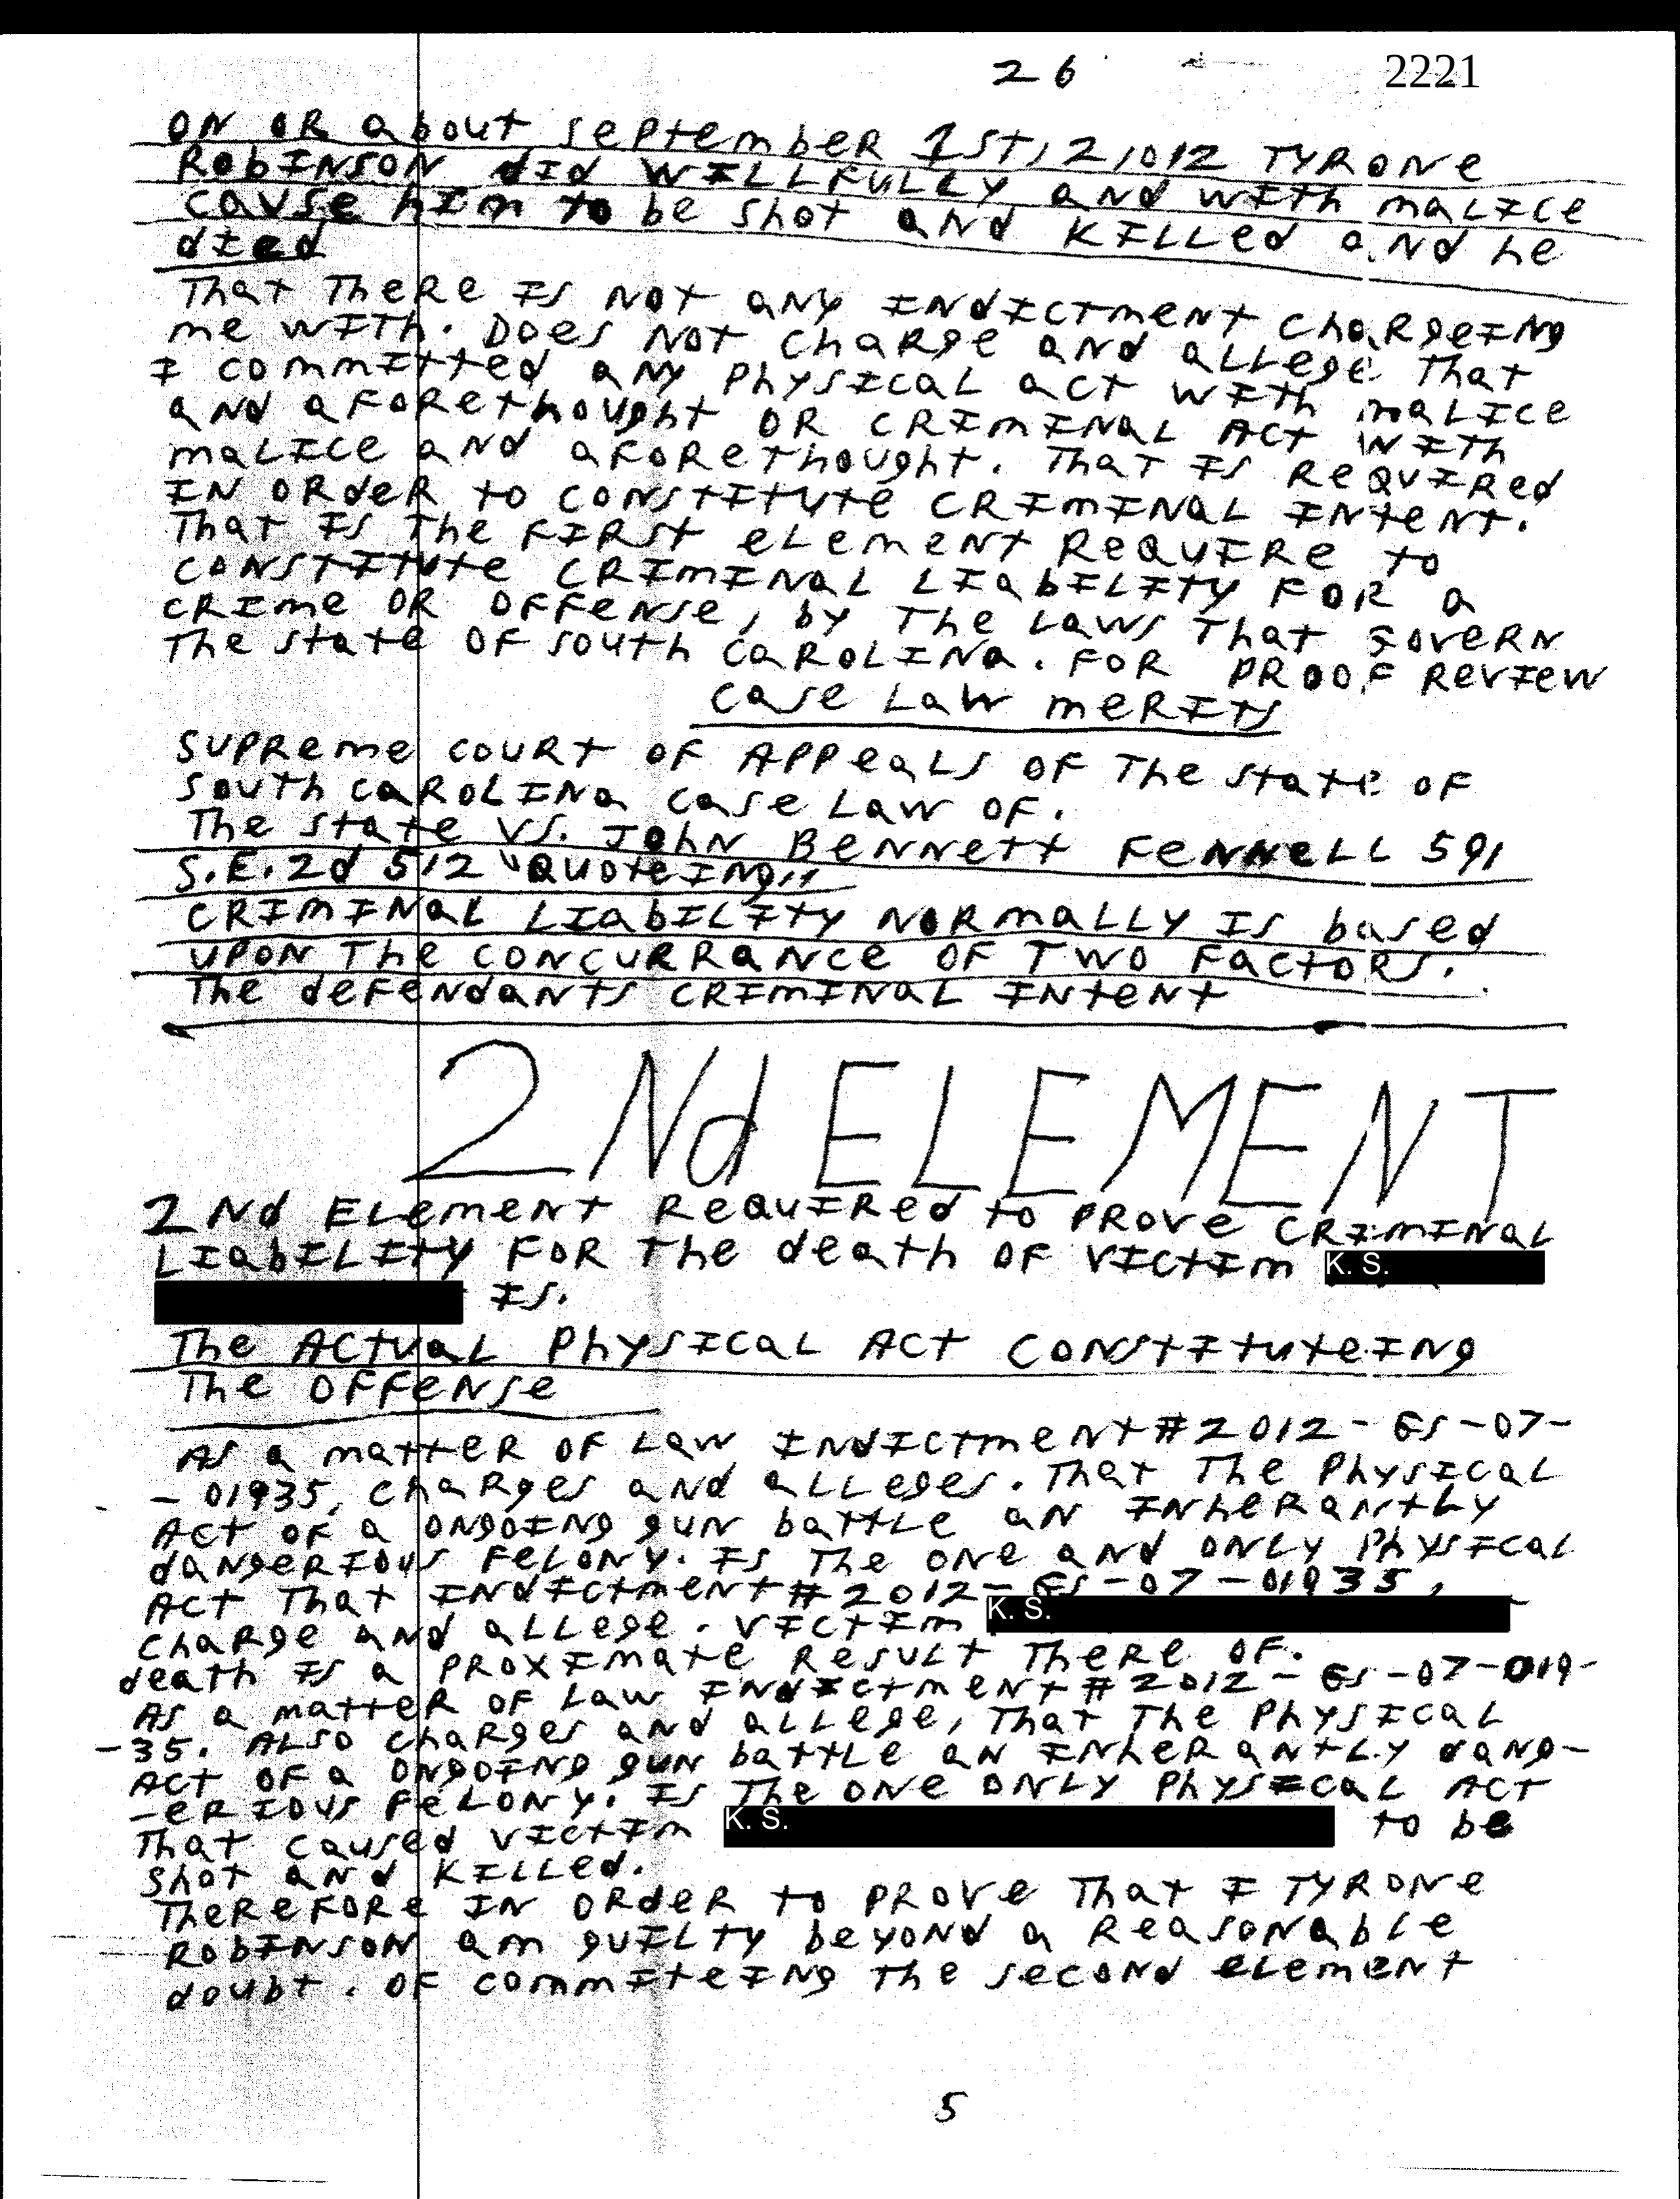 26 2221
ON OR about september 1ST, 2,012 TYRONE
RobINSON did WILLFULLY and with maLICE
cause him to be shot and KILLed and he
died
That There IS NOT any INdICTmeNT chaRgeINg
me WITh. Does NOT chaRge and aLLege That
I committed any PhysIcaL act with maLICE
and aForethought OR CRIMINAL ACT WITH
maLIce and aForethought. That IS ReQUIRed
IN ORdeR to CONSTITUTE CRIMINAL INTENT.
That IS The FIRST eLement RequIRe to
CONSTITUTE CRIMINAL LIabILITY FOR a
CRIme OR OFFeNse, by The Laws That govern
The state OF south CaROLINa. FOR PROOF RevIew
case Law meRITS
SUPReme couRt OF APPeaLs OF The state OF
South CaROLINa case Law OF.
The state VS. JOhN BeNNett FeNNeLL 591
S.E.2d 512 "QuoteINg,,
CRIMINAL LIabILITY NORmaLLy IS based
UPON The CONCURRANCE OF TWO FactORS.
The defendants CRIMINAL INTENT
2Nd ELEMENT
2Nd ELement RequIRed to PROVE CRIMINAL
LIabILITY FOR The death OF VICTIm K. S.
IS.
The ACTUAL PhysICaL ACT CONSTITUTeINg
The OFFeNse
As a matteR OF Law INdICTment # 2012 - GS - 07 -
- 01935, chaRges and aLLeges. That The PhysICaL
ACT OF a ONgOINg gun battLe an INheRantLy
dangeRIOUS FeLONy. IS The ONe and ONLy PhysICaL
ACT That INdICTment # 2012 - GS - 07 - 01935,
chaRge and aLLege. VICTIm K. S.
death IS a PROXImate ResuLt TheRe OF.
As a matteR OF Law INdICTment # 2012 - GS - 07 - 019-
- 35. ALSO chaRges and aLLege, That The PhysICaL
ACT OF a ONgOINg gun battLe an INheRantLy dang-
- eRIOUS FeLONy. IS The ONe ONLy PhysICaL ACT
That caused VICTIm K. S. to be
shot and KILLed.
TheReFORe IN ORdeR to PROVE That I TYRONE
RobINSON am guILTy beyoNd a ReasoNabLe
doubt. OF committeINg The second eLement
5